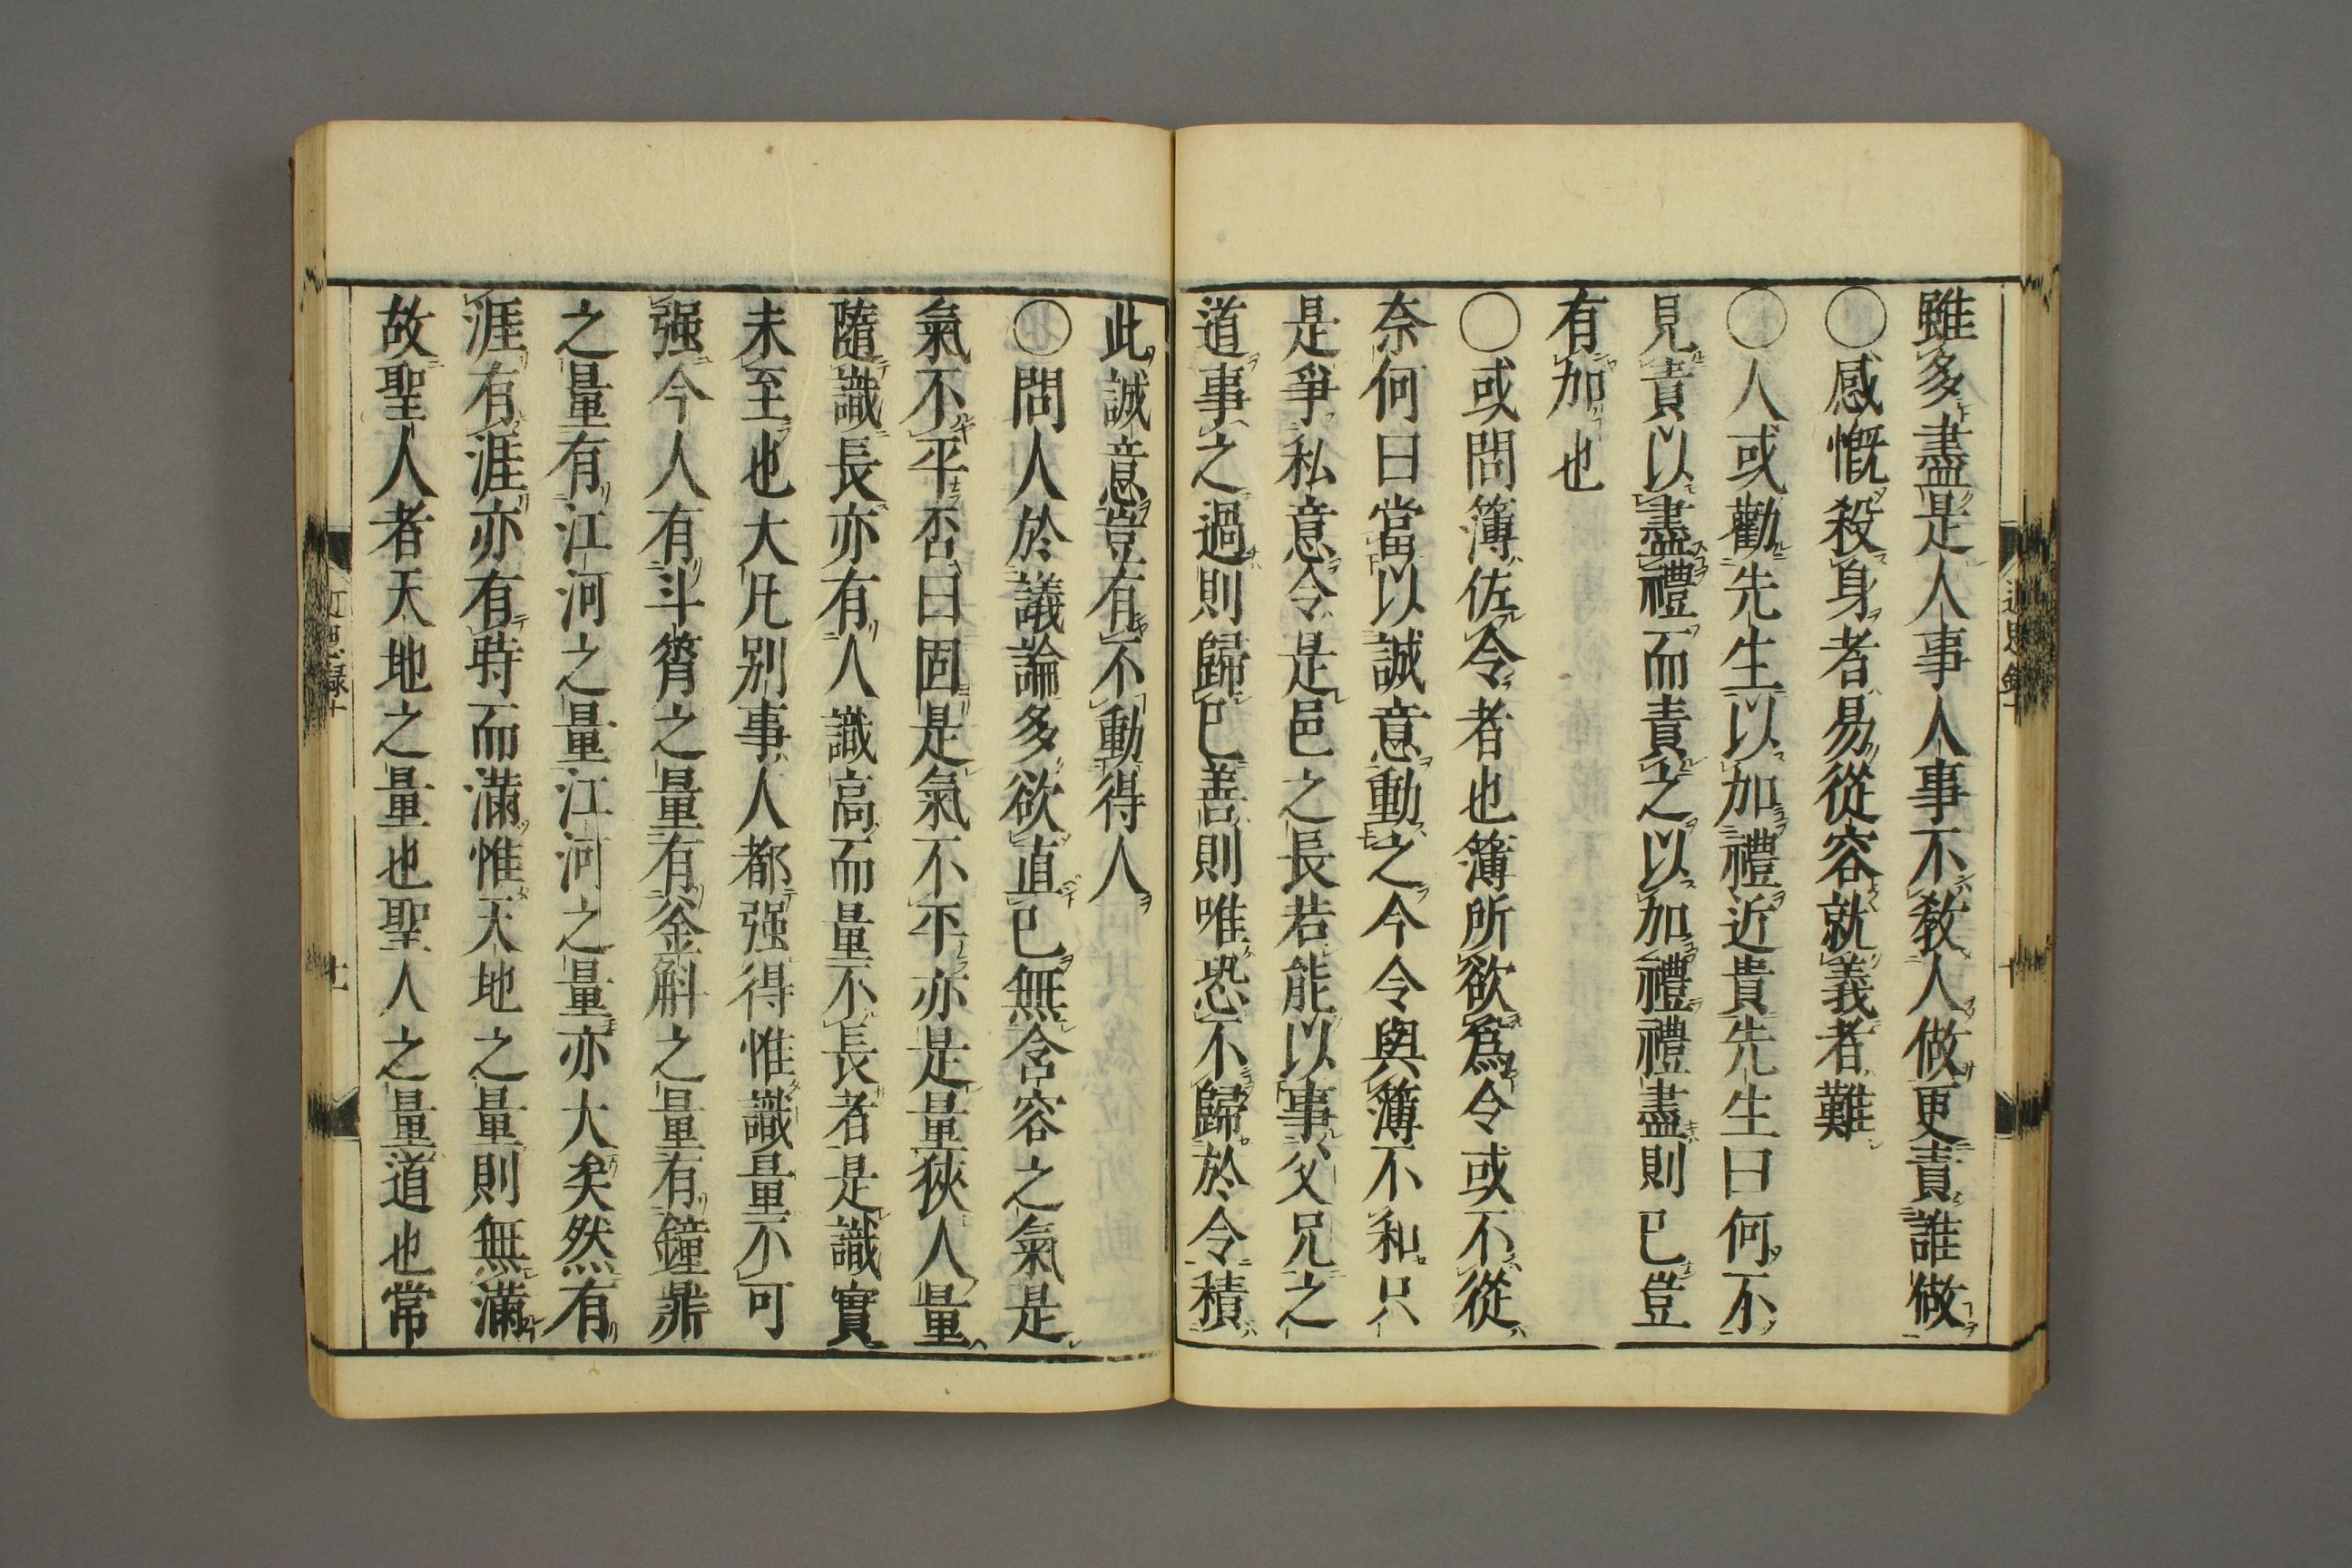 雖多盡是人事人事不敎人做更責誰做
〇感慨殺身者易從容就義者難
〇人或勸先生以加禮近貴先生曰何不
見責以盡禮而責之以加禮禮盡則已豈
有加也
〇或問簿佐令者也簿所欲爲令或不從
奈何曰當以誠意動之今令與簿不和只
是爭私意令是邑之長若能以事父兄之
道事之過則歸已善則唯恐不歸於令積
此誠意豈有不動得人
〇問人於議論多欲直已無含容之氣是
氣不平否曰固是氣不平亦是量狹人量
隨識長亦有人識高而量不長者是識實
未至也大凡別事人都强得惟識量不可
强今人有斗筲之量有釜斛之量有鐘鼎
之量有江河之量江河之量亦大矣然有
涯有涯亦有時而滿惟天地之量則無滿
故聖人者天地之量也聖人之量道也常
近思錄十